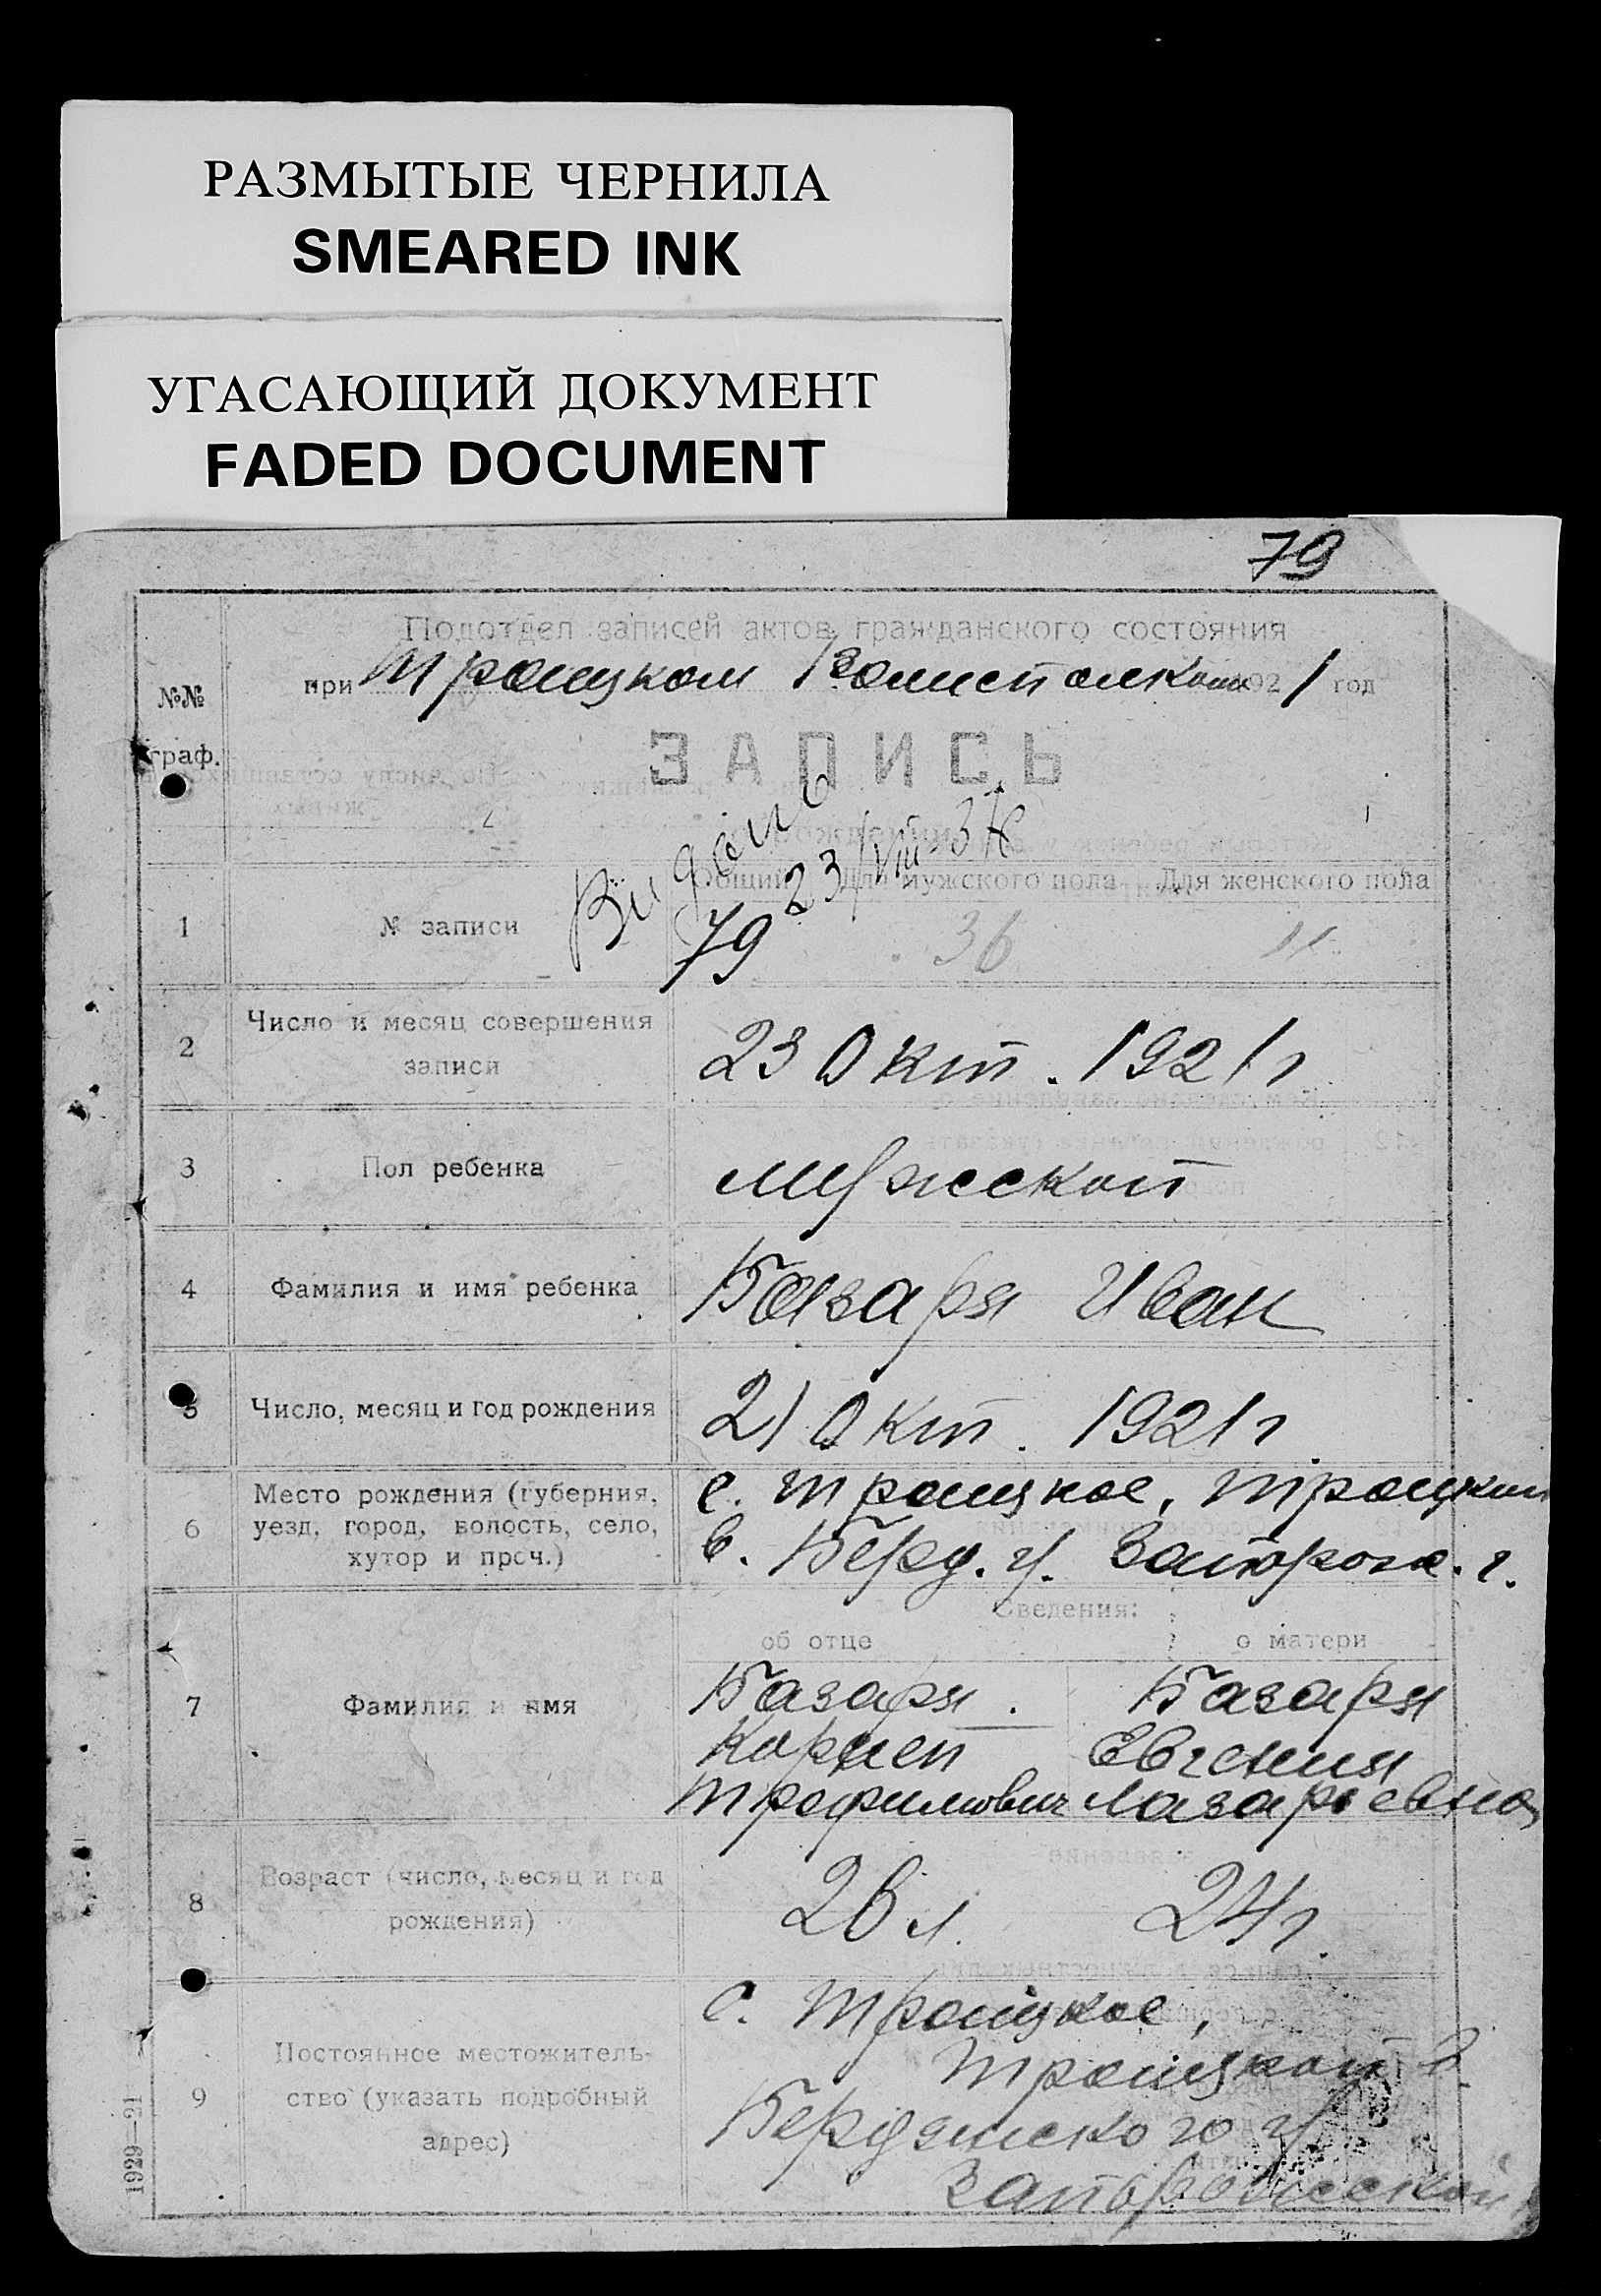 РАЗМЫТЫЕ ЧЕРНИЛА
SMEARED INK
УГАСАЮЩИЙ ДОКУМЕНТ
FADED DOCUMENT
79
Подотдел записей актов гражданского состояния
№№ граф.
при Троицком Волисполкоме 1921 год
ЗАПИСЬ
Видано 23/VIII-37
Общий Для мужского пола Для женского пола
1 № записи 79 36 "
2 Число и месяц совершения записи 23 Окт. 1921 г
3 Пол ребенка мужской
4 Фамилия и имя ребенка Базаря Иван
5 Число, месяц и год рождения 21 Окт. 1921 г
6 Место рождения (губерния, с. Троицкое, Троицкой
уезд, город, волость, село, в. Берд. у. Запорож. г.
хутор и проч.)
Сведения:
об отце о матери
7 Фамилия и имя Базаря. Базаря
Корней Евгения
Трофимович Лазаревна
8 Возраст (число, месяц и год рождения) 26 л. 24 г.
с. Троицкое,
9 Постоянное местожитель- Троицкой в.
ство (указать подробный Бердянского у
адрес) Запорожской
1929—21